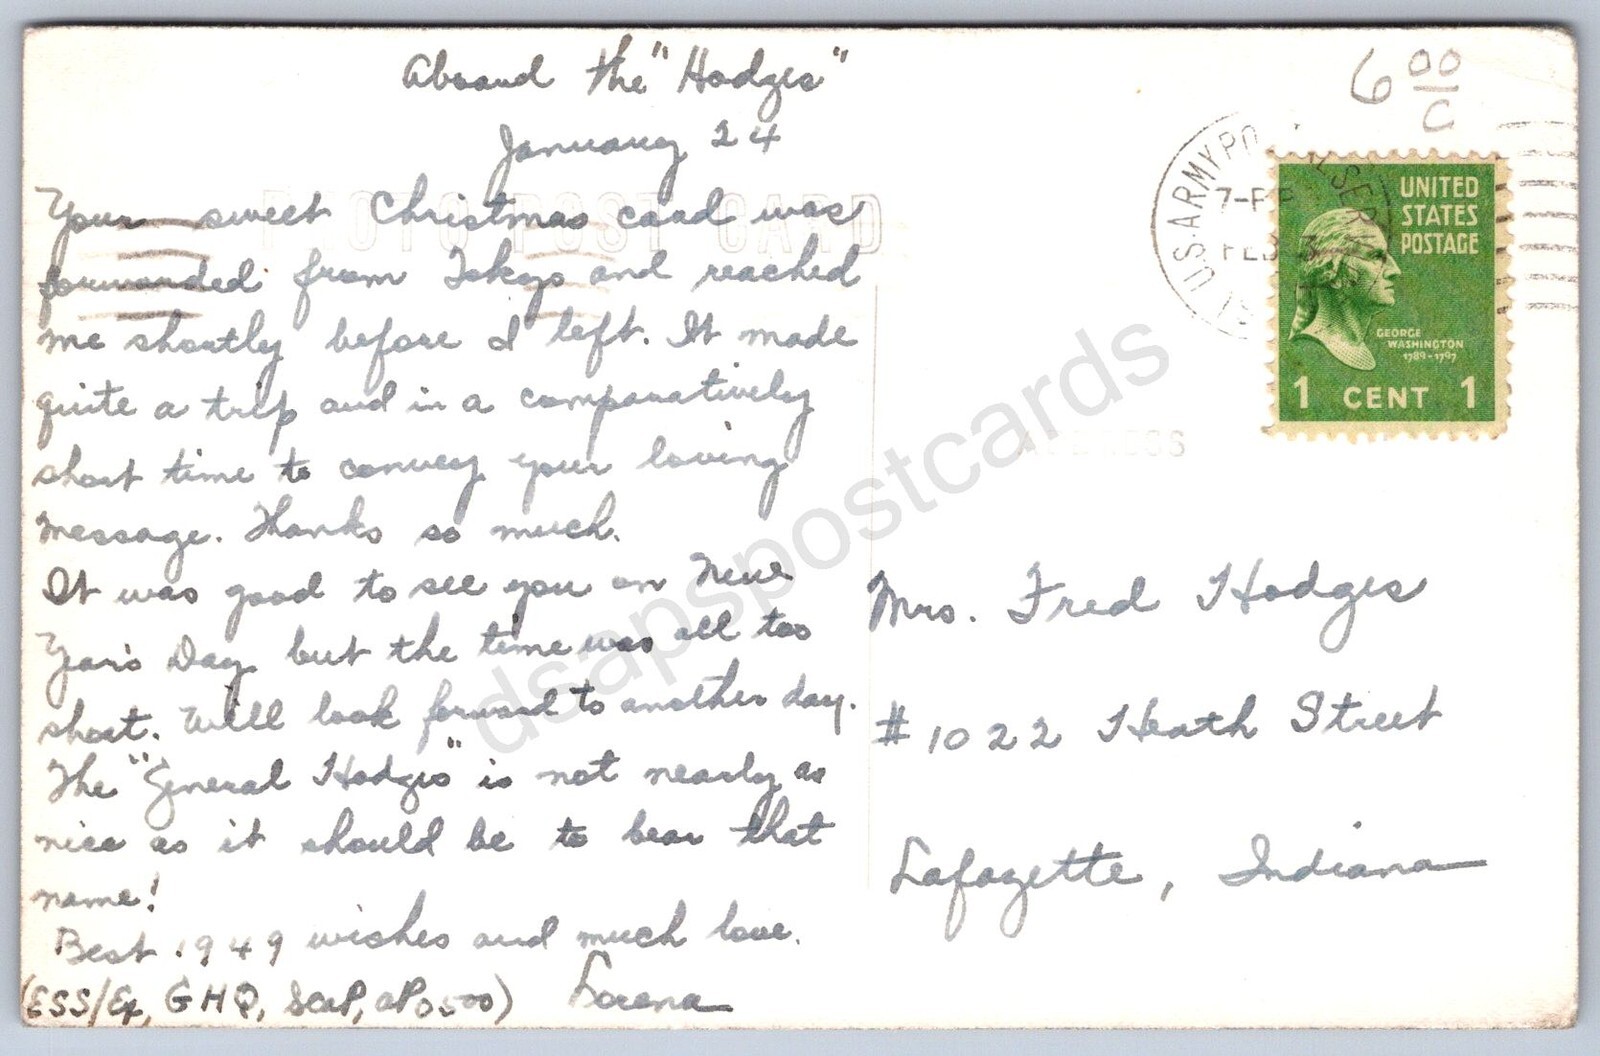 Aboard the "Hodges"
January 24
6 00
C
PHOTO POST CARD
Your sweet Christmas card was
forwarded from Tokyo and reached
me shortly before I left. It made
quite a trip and in a comparatively
short time to convey your loving
message. Thanks so much.
It was good to see you on New
Year's Day but the time was all too
short. Will look forward to another day.
The "General Hodges" is not nearly as
nice as it should be to bear that
name!
Best 1949 wishes and much love.
(ESS/Ex, GHQ, SCAP, APO 500) Lorena
U.S. ARMY
FEB 3
UNITED
STATES
POSTAGE
GEORGE
WASHINGTON
1789-1797
1 CENT 1
ADDRESS
Mrs. Fred Hodges
#1022 Heath Street
Lafayette, Indiana
dsapspostcards